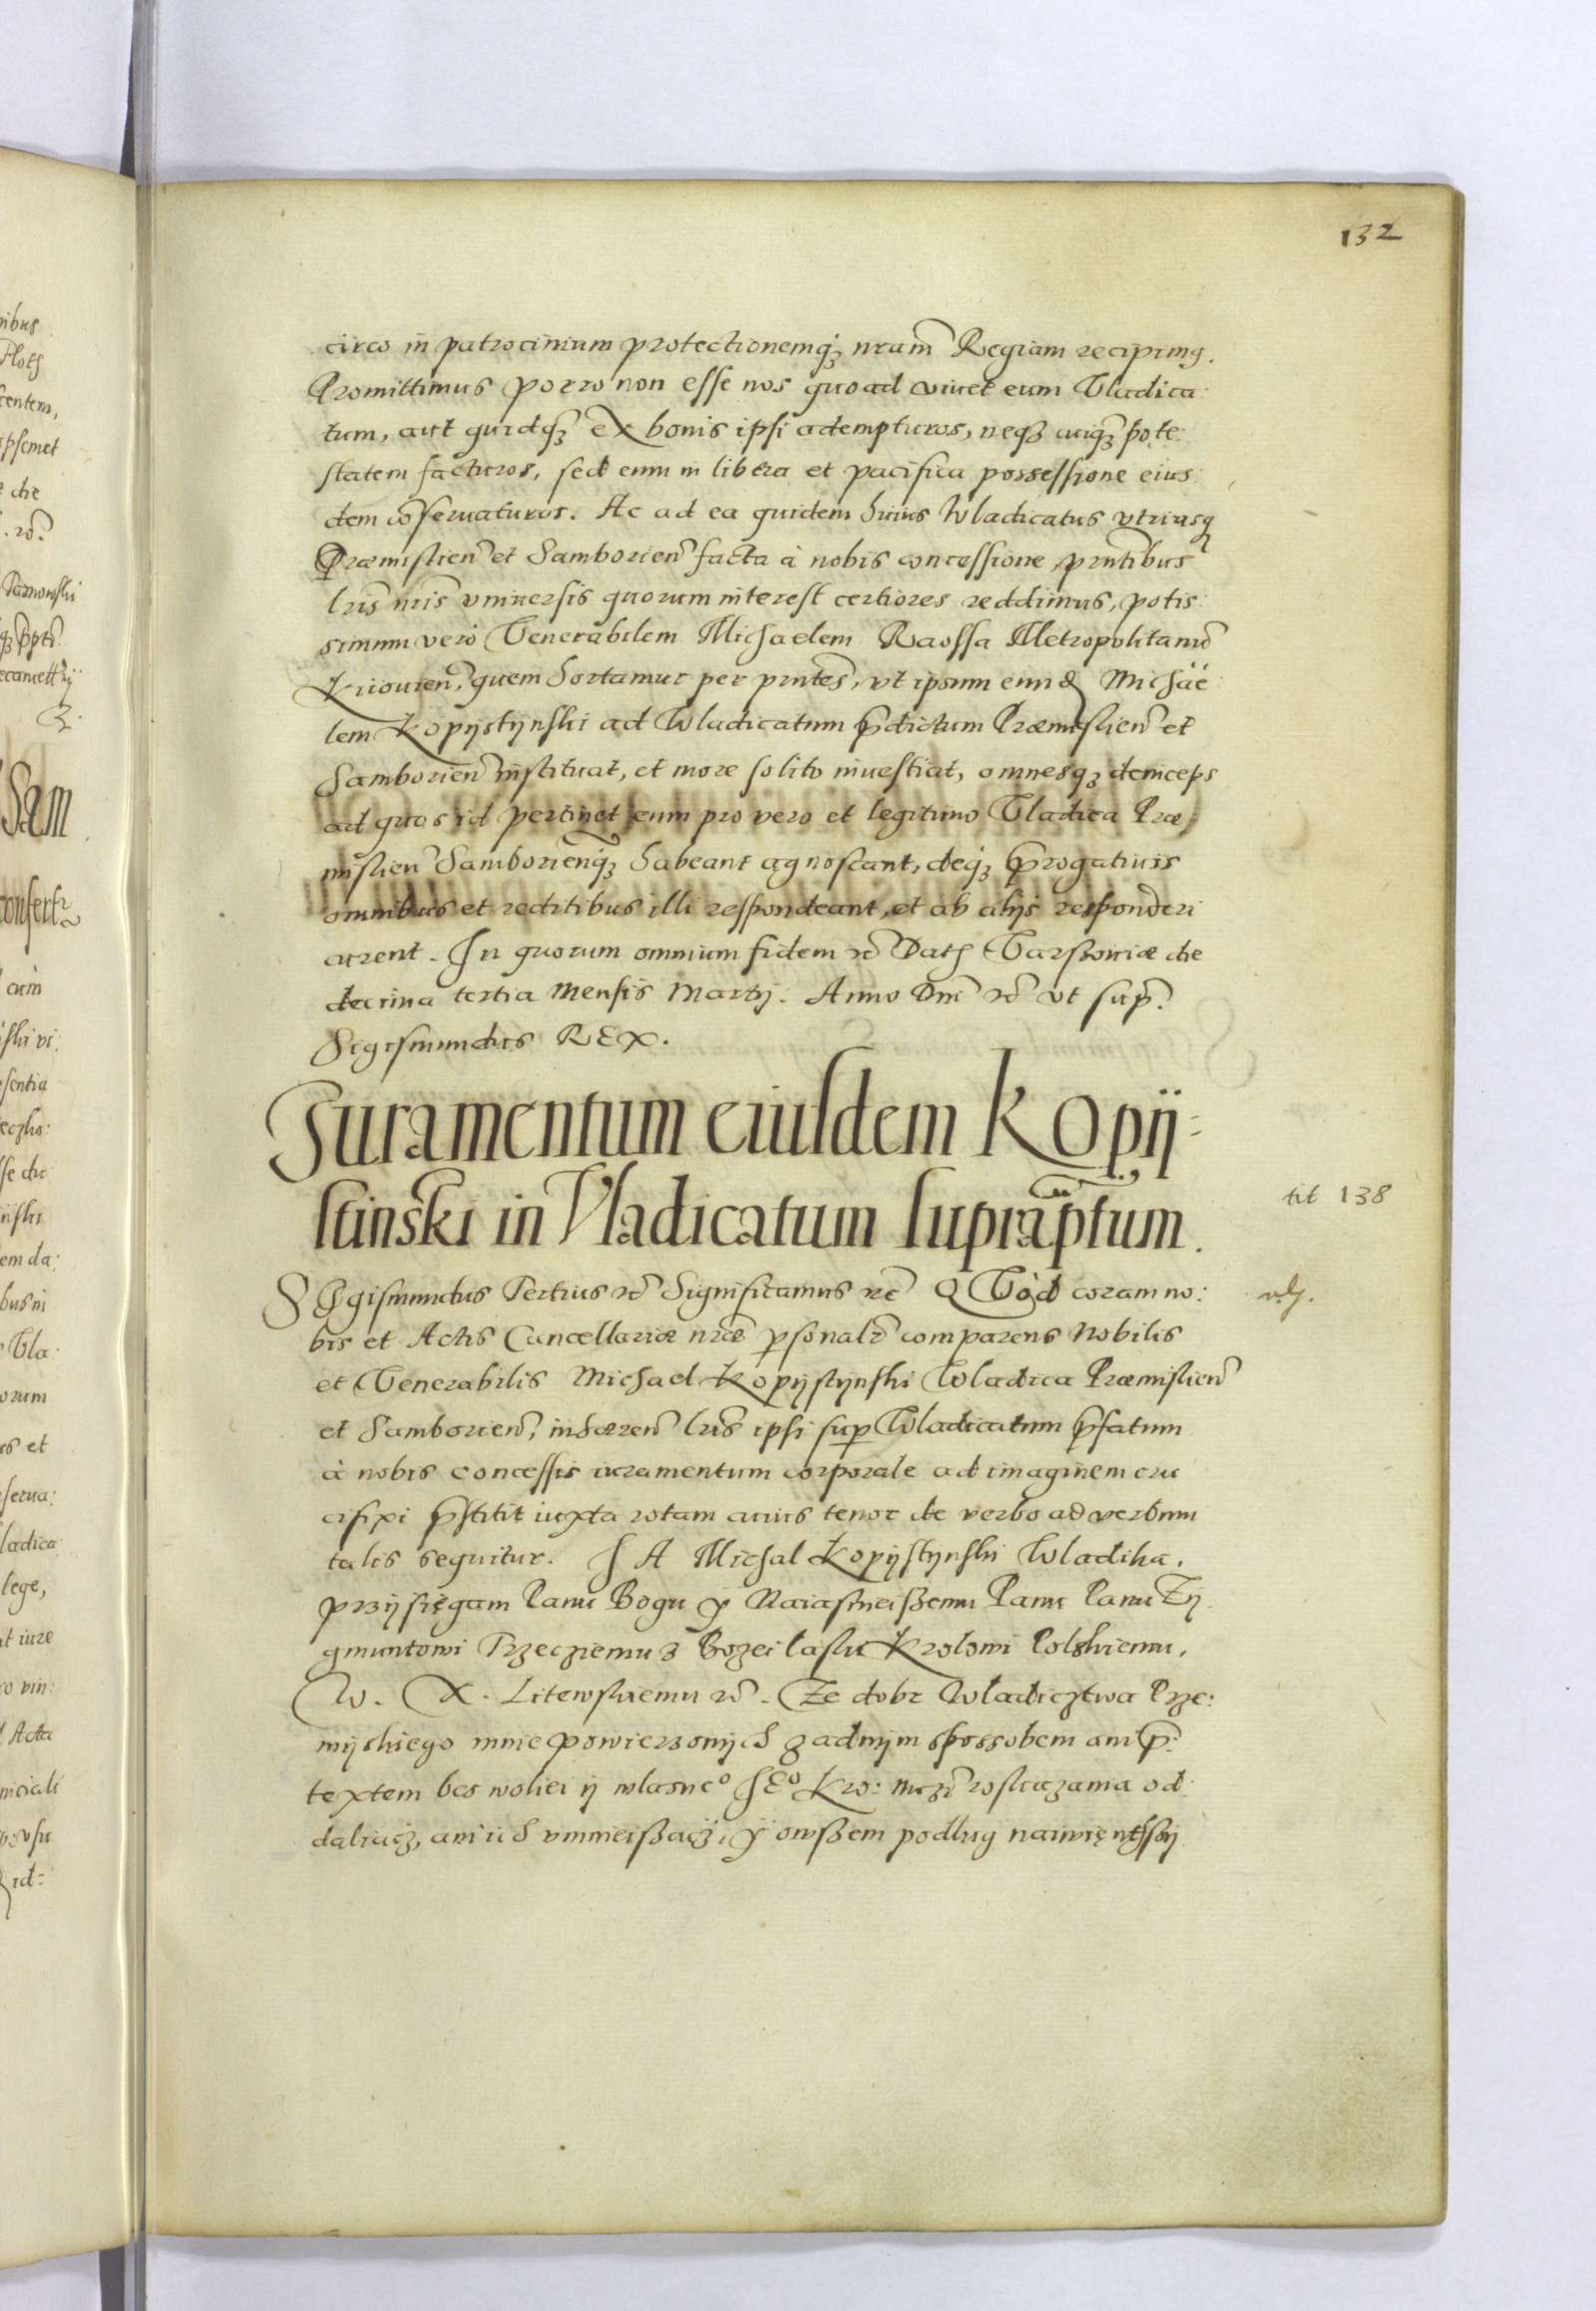 132
circo in patrocinium protectionemq₃ nram̃ Regiam recipimꝰ.
Promittimus porro non esse nos quoad viuet eum Vladica
tum, aut quidq₃ ex bonis ipsi adempturos, neq₃ cuiq₃ pote
statem facturos, sed eum in libera et pacifica possessione eius
dem cõseruaturos. Ac ad ea quidem huius Wladicatus vtriusq
Præmislien̄ et Samborien̄ facta à nobis concessione, prñtibus
lris̃ nris̃ vniuersis quorum interest certiores reddimus, potis
simum verò Venerabilem Michaelem Rahossa Metropolitanũ
Kiiouien̄, quem hortamur per prñtes, vt ipsum eund Michäe
lem Kopijstijnski ad Wladicatum p̃dictum Præmislien̄ et
Samborien̄ instituat, et more solito inuestiat, omnesq₃ deinceps
ad quos id pertinet eum pro vero et legitimo Vladica Præ
mislien̄ Samborienq₃ habeant agnoscant, deq₃ p̃rogatiuis
omnibus et reditibus illi respondeant, et ab alijs responderi
curent. In quorum omnium fidem rc̃ Dat Varssouiæ die
decima tertia Mensis Martij. Anno Dni rc̃ vt sup̃.
Sigismundus REX.
Juramentum eiusdem Kopij=
stinski in Vladicatum supraptum.
tit 138
Sigismundus Tertius rc̃ Significamus rc̃ QVòd coram no:
bis et Actis Cancellariæ nræ p̱sonalr̃ comparens Nobilis
et Venerabilis Michael Kopijstijnski Wladica Præmislien̄
et Samborien̄, inhæren̄ lris̃ ipsi sup̱ Wladicatum p̃fatum
à nobis concessis iuramentum corporale ad imaginem cru
cifixi p̃stitit iuxta rotam cuius tenor de verbo ad verbum
talis sequitur. JA Michal Kopijstijnski Wladika,
przijsięgam Panu Bogu y Naiasnieißemu Panu Panu Zij
gmuntowi Trzecziemu z Bozei łaski Krolowi Polskiemu,
W. X. Litewskiemu rc̃. Ze dobr Władicztwa Prze:
mijskiego mnie powierzonijch zadnijm spossobem ani p̃
textem bes woliei ij wlasneº JEº Kro: Mczi roskazania od
daliacz, ani ich vmnieißacz, y owßem podlug naiwiętssij